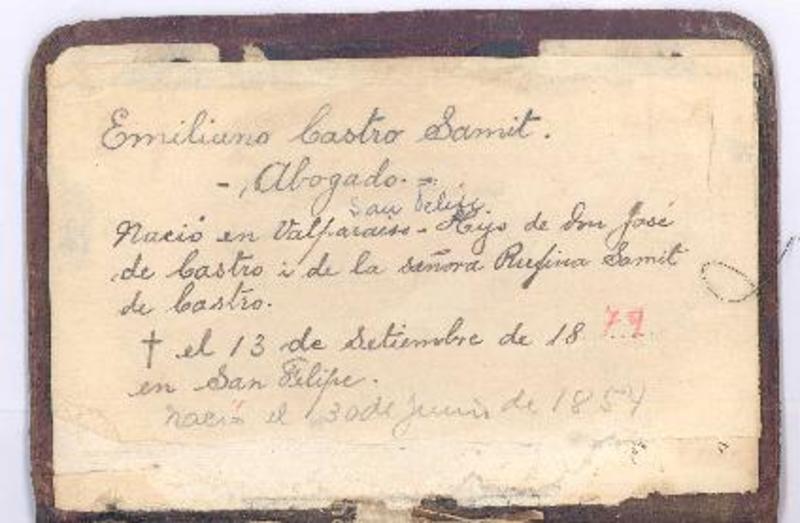 Emiliano Castro Samit.
-, Abogado. -
San Felipe
Nació en Valparaiso - Hijo de don José
de Castro i de la señora Rufina Samit
de Castro.
† el 13 de Setiembre de 18 79
en San Felipe.
Nació el 30 de Junio de 1854